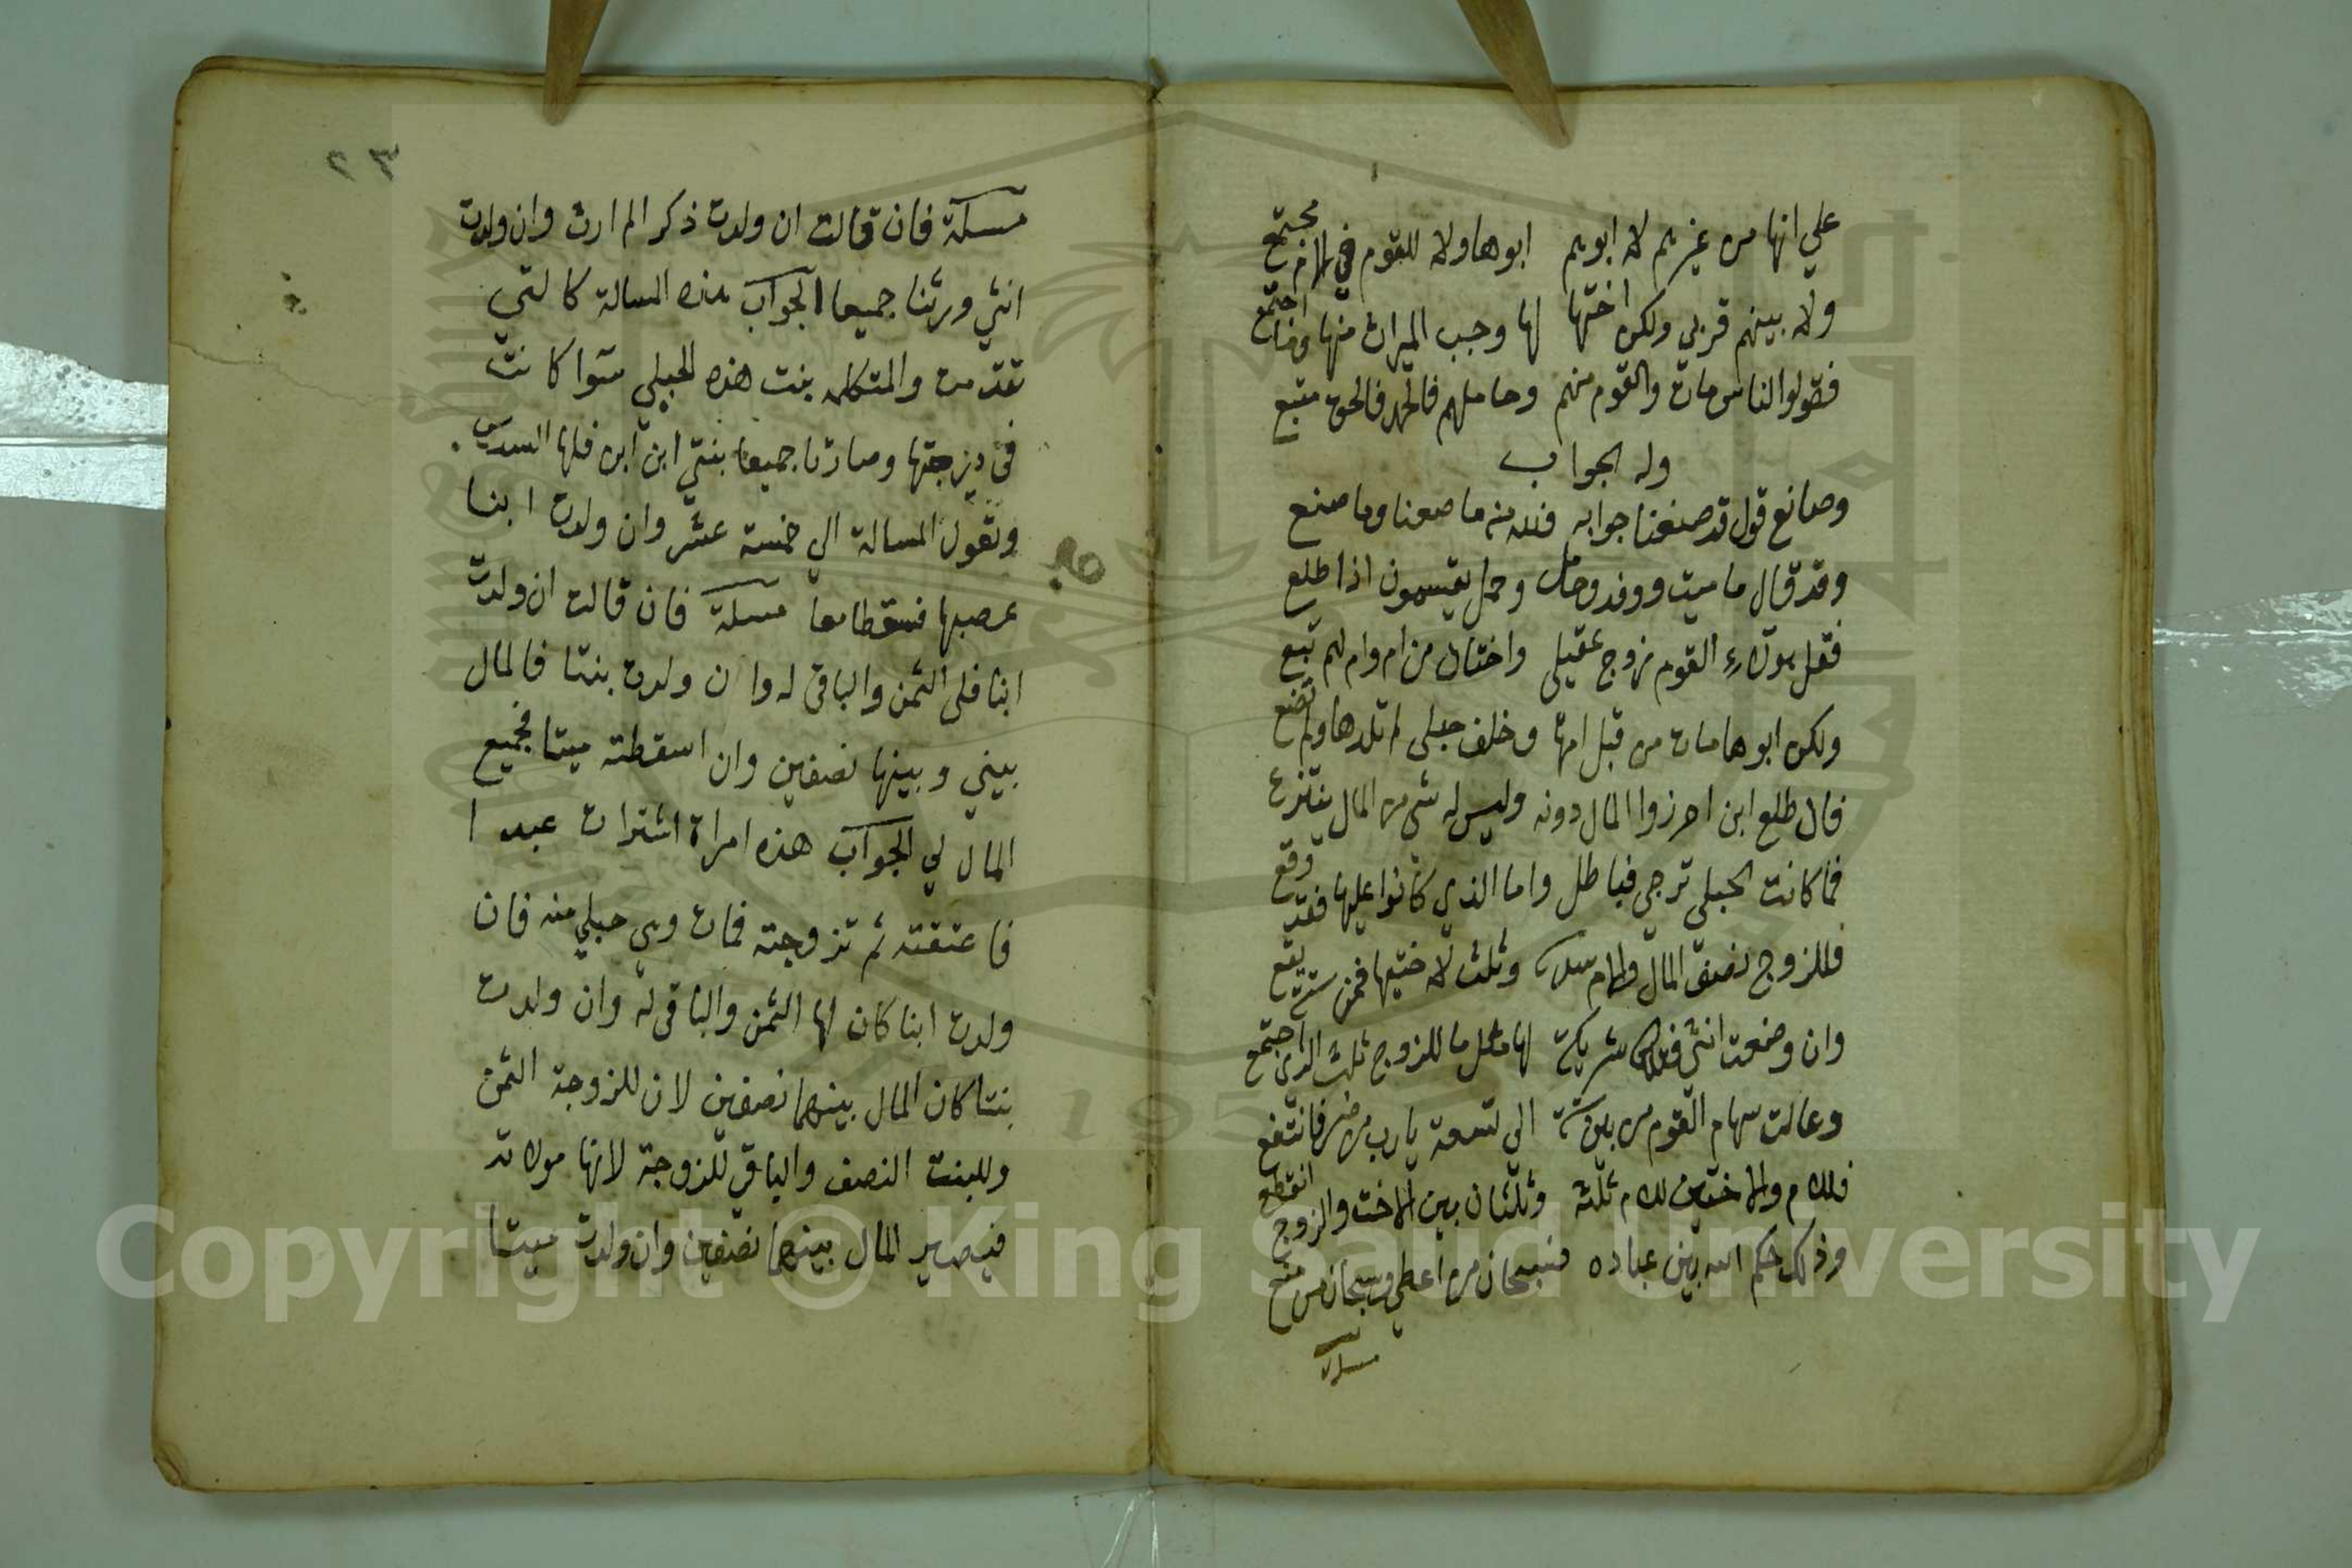 علي انها من غيرهم لا ابوهم ابوها ولا للقوم في الام مجتمع
ولا بينهم قربي ولكن اختها لها وجب الميراث منها اجتمع
فقولوا الناس مات والقوم منهم وحاملهم فالحق متبع
وله الجواب
وصانع قول قد صنعنا جوابه فلله منه ما صنعنا وما صنع
وقد قال ما ميت ووفد وحامل وحمل يقيسمون اذا طلع
فقل هولاء القوم زوج عقيلي واختان من ام وام لهم تبع
ولكن ابوها مات من قبل امها وخلف حبلى لم تلدها ولم تضع
فان طلع ابن احرزوا المال دونه وليس له شي من المال ينتزع
فما كانت الحبلي ترجي فباطل واما الذي كانوا عليها فقد وقع
فللزوج نصف المال وللام سدس وثلث لاختيها فمن ستة يقع
وان وضعت انثي شريكة لها مثل ما للزوج ثلث الذي اجتمع
وعالت سهام القوم من بعد ستة الى تسعة يارب من ضر فانتفع
فللام والاختين للام ثلثه وثلثان بين الاخت والزوج انقطع
وذلك حكم الله بين عباده فسبحان من اعطي وسبحان من منع
مسلة
٢٣
مسلة فان قالت ان ولدت ذكر الم ارث وان ولدت
انثي ورثنا جميعا الجواب هذه المسالة كالتي
تقدمت والمتكلمه بنت هذه الحبلي سوا كانت
في درجتها وصارتا جميعا بنتي ابن ابن فلها السدس
وتعول المسالة الي خمسة عشر وان ولدت ابنا
عصبها فسقطا معا مسلة فان قالت ان ولدت
ابنا فلي الثمن والباقي له وان ولدت بنتا فالمال
بيني وبينها نصفين وان اسقطته ميتا فجميع
المال لي الجواب هذه امراة اشترات عبدا
فاعتقته ثم تزوجته فمات وهي حبلي منه فان
ولدت ابنا كان لها الثمن والباقي له وان ولدت
بنتا كان المال بينهما نصفين لان للزوجة الثمن
وللبنت النصف والباقي للزوجة لانها مولاته
فيصير المال بينهما نصفين وان ولدت ميتا
Copyright © King Saud University